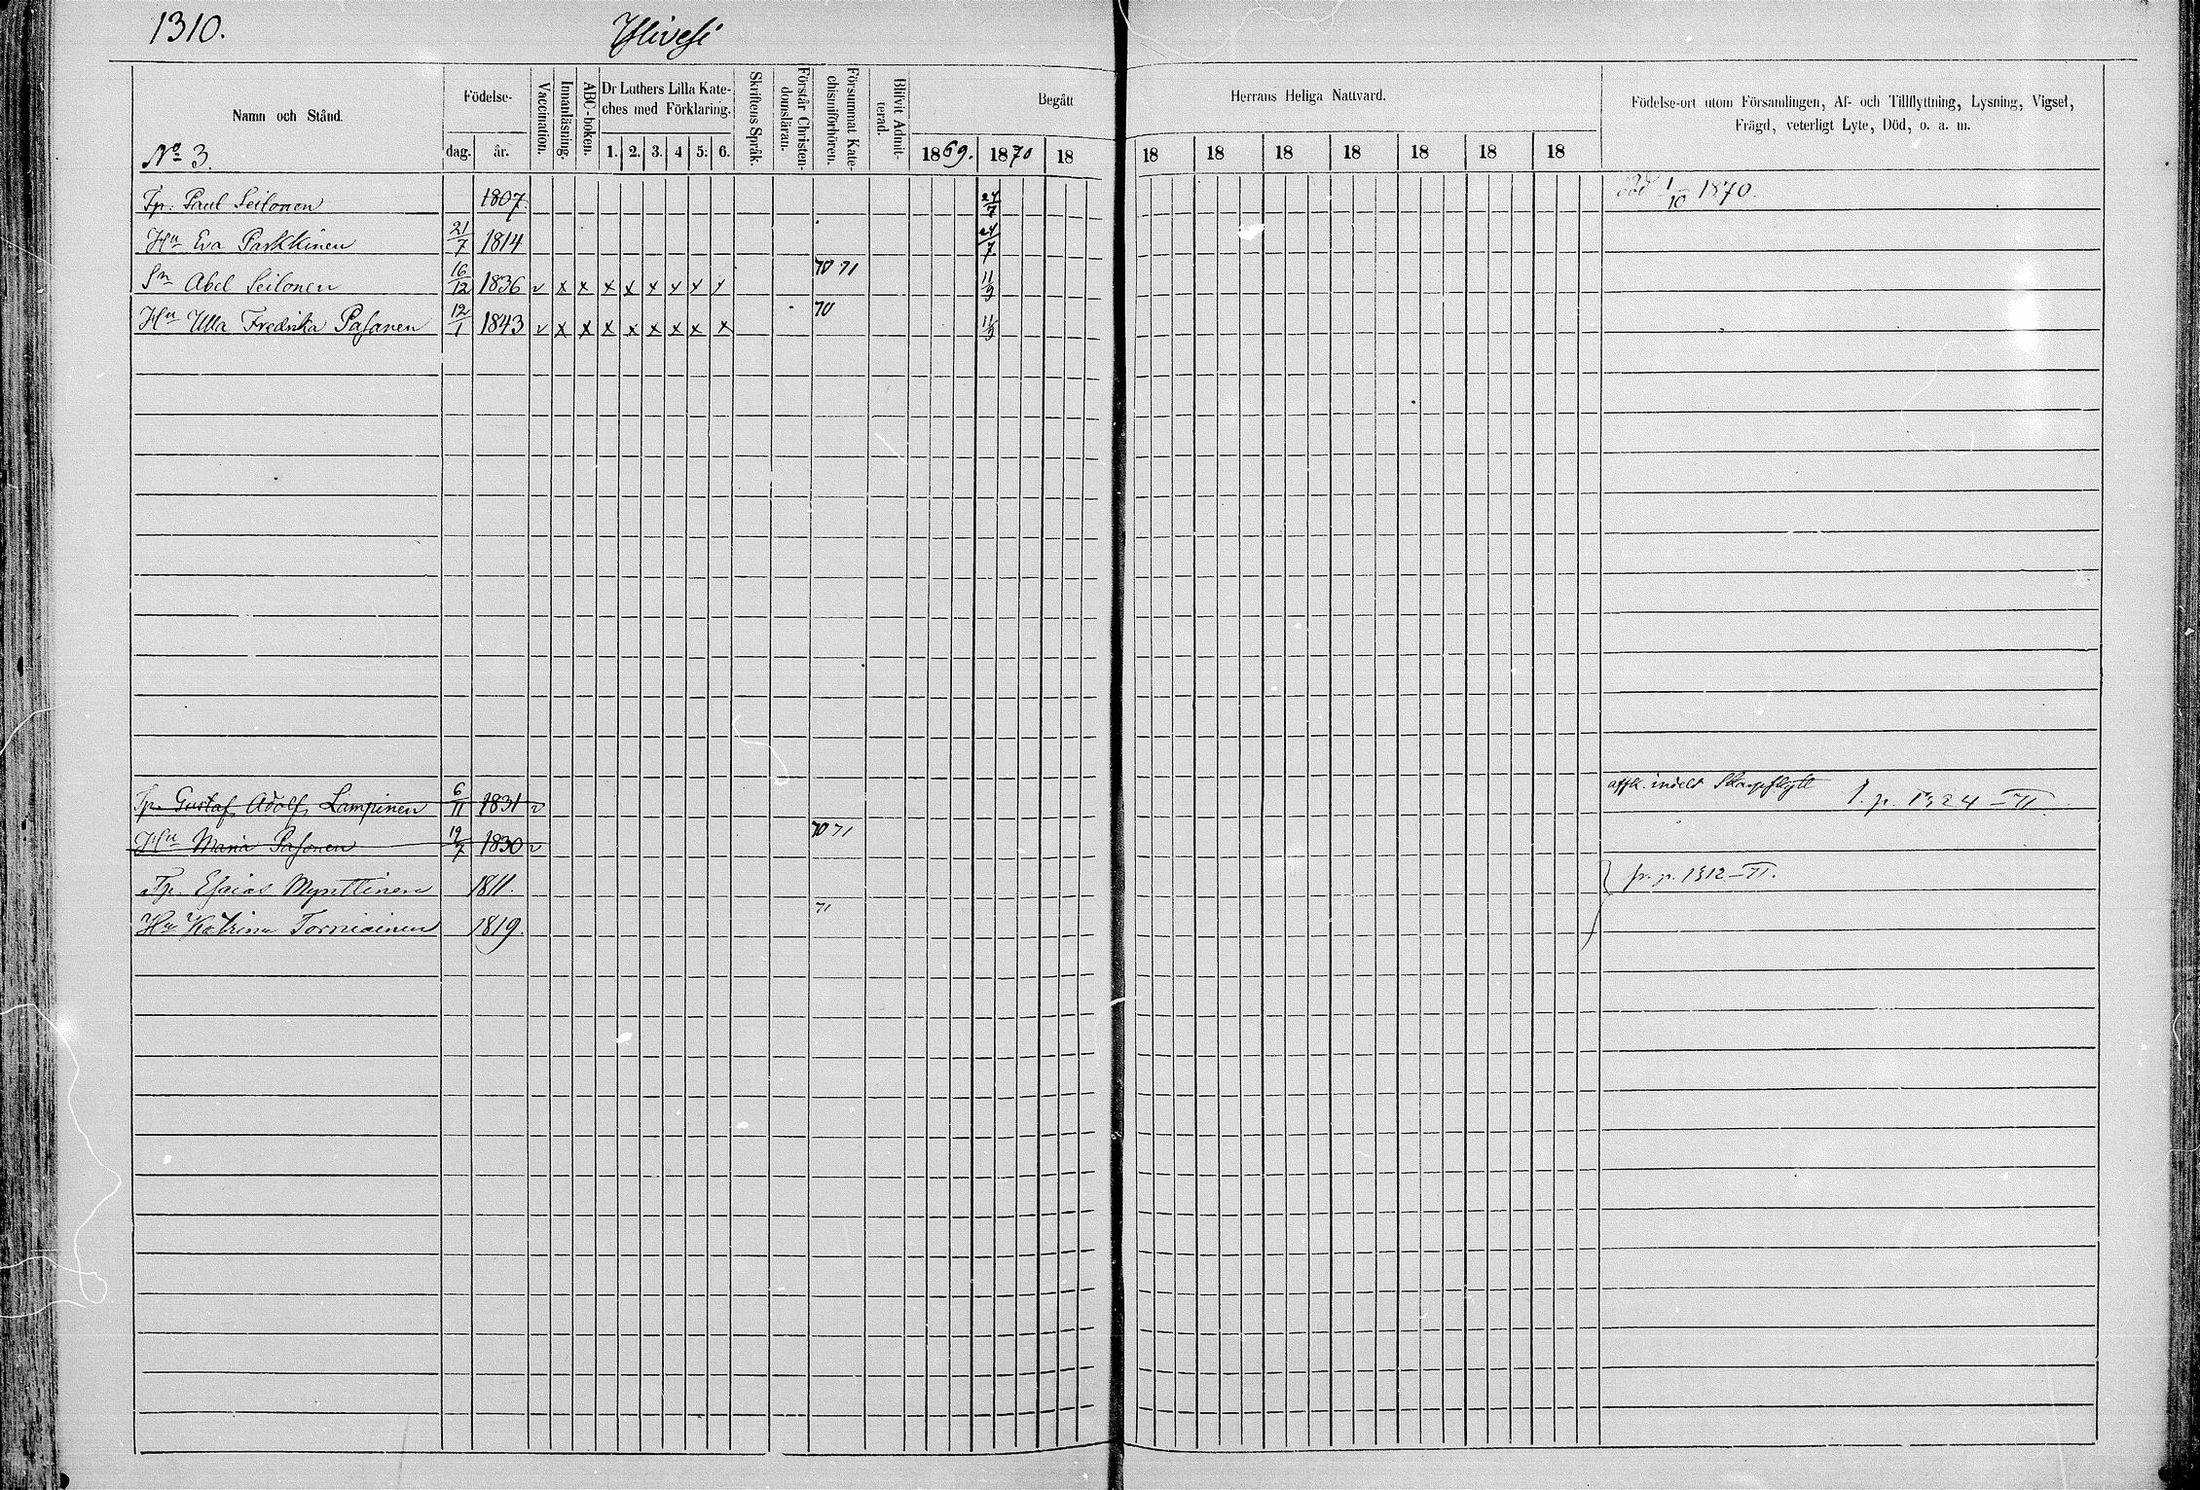 1310.
Ylivesi
Namn och Stånd.
Födelse-
dag.
år.
Vaccination.
Innanläsning.
ABC-boken.
Dr Luthers Lilla Kate-
ches med Förklaring.
1. 2. 3. 4 5. 6.
Skriftens Språk.
Förstår Christen-
domsläran.
Försummat Kate-
chismiförhören.
Blifvit Admit-
terad.
Begått
Herrans Heliga Nattvard.
1869. 1870 18 18 18 18 18 18 18 18
Födelse-ort utom Församlingen, Af- och Tillflyttning, Lysning, Vigsel,
Frägd, veterligt Lyte, Död, o. a. m.
No 3.
Tp. Paul Seilonen 1807. 24/7 död 1/10 1870.
Hu Eva Parkkinen 21/7 1814 24/7
Sn Abel Seilonen 16/12 1836 v x x x x x x x x 70 71 11/9
Hu Ulla Fredrika Pasanen 12/1 1843 v x x x x x x x x 70 11/9
Tp. Gustaf Adolf Lampinen 6/11 1831 v indelt I. p. 1324-II
Hu Maria Pasonen 19/7 1830 v 70 71
Tp. Esaias Mynttinen 1811. fr. p. 1312-II.
Hu Katrina Torniainen 1819. 71